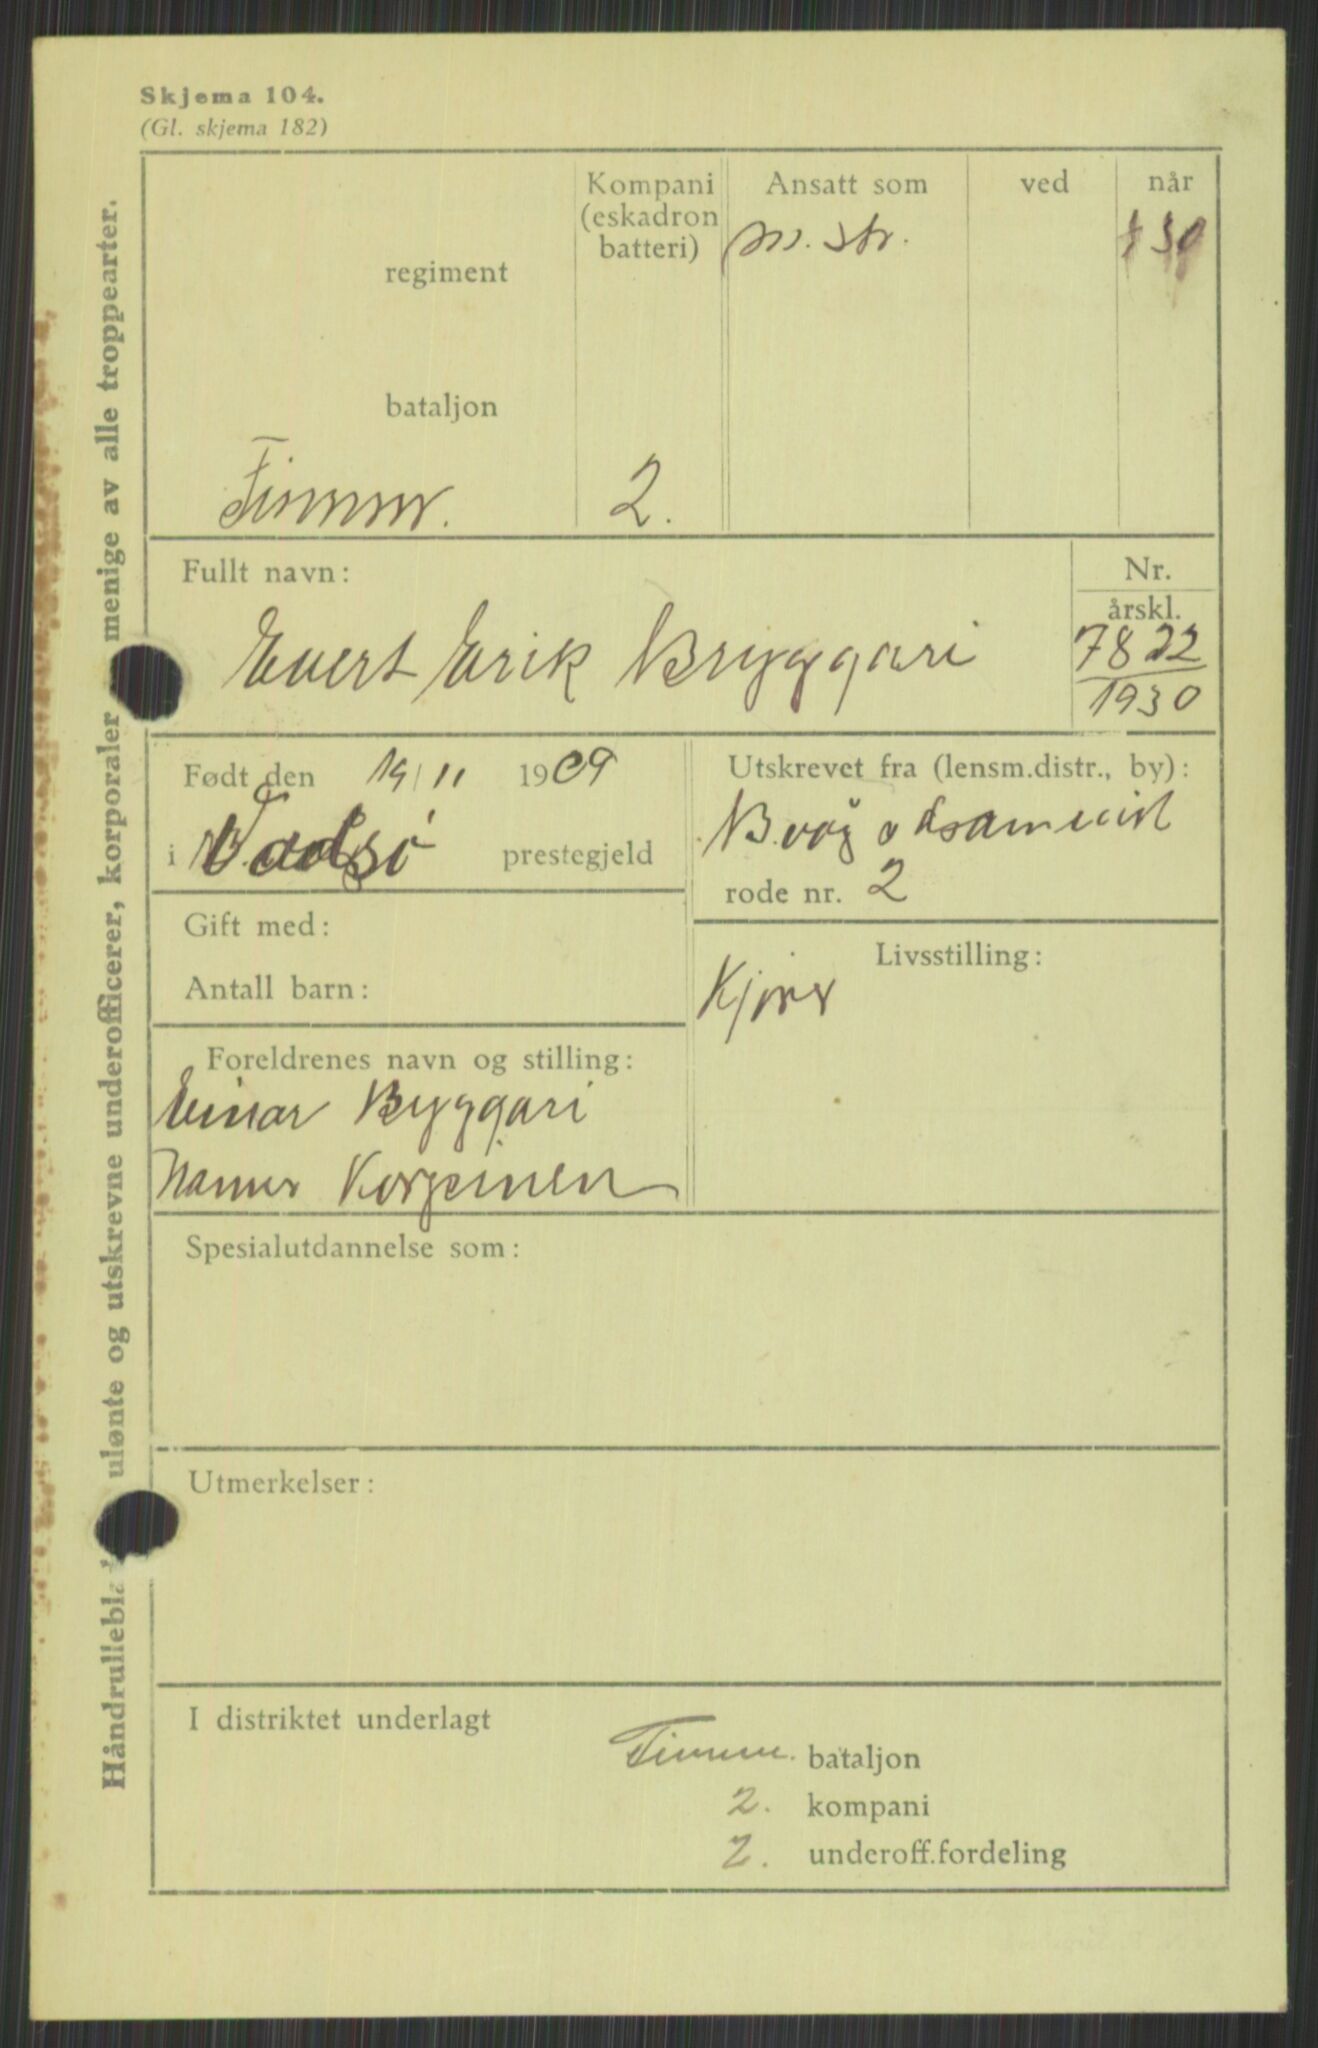 Skjema 104.
(Gl. skjema 182)
Håndrullebla ulønte og utskrevne underofficerer, korporaler menige av alle troppearter.
Kompani (eskadron batteri)
Ansatt som
ved
når
regiment
m. str.
30
bataljon
Finnm.
2.
Fullt navn:
Nr.
årskl.
Evert Erik Bryggari
7822
1930
Født den 19/11 1909
i Vadsø prestegjeld
Utskrevet fra (lensm.distr., by):
rode nr. 2
Gift med:
Antall barn:
Livsstilling:
Foreldrenes navn og stilling:
Einar Bryggari
Korpinen
Spesialutdannelse som:
Utmerkelser:
I distriktet underlagt
Finnm. bataljon
2. kompani
2. underoff.fordeling